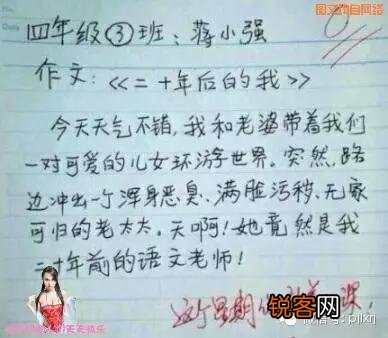 图文来自网络
四年级③班：蒋小强
作文：《二十年后的我》
今天天气不错，我和老婆带着我们
一对可爱的儿女环游世界。突然，路
边冲出一个浑身恶臭、满脸污秽、无家
可归的老太太。天啊！她竟然是我
二十年前的语文老师！
这个星期
课！
锐客网
微信号：pjlxrj